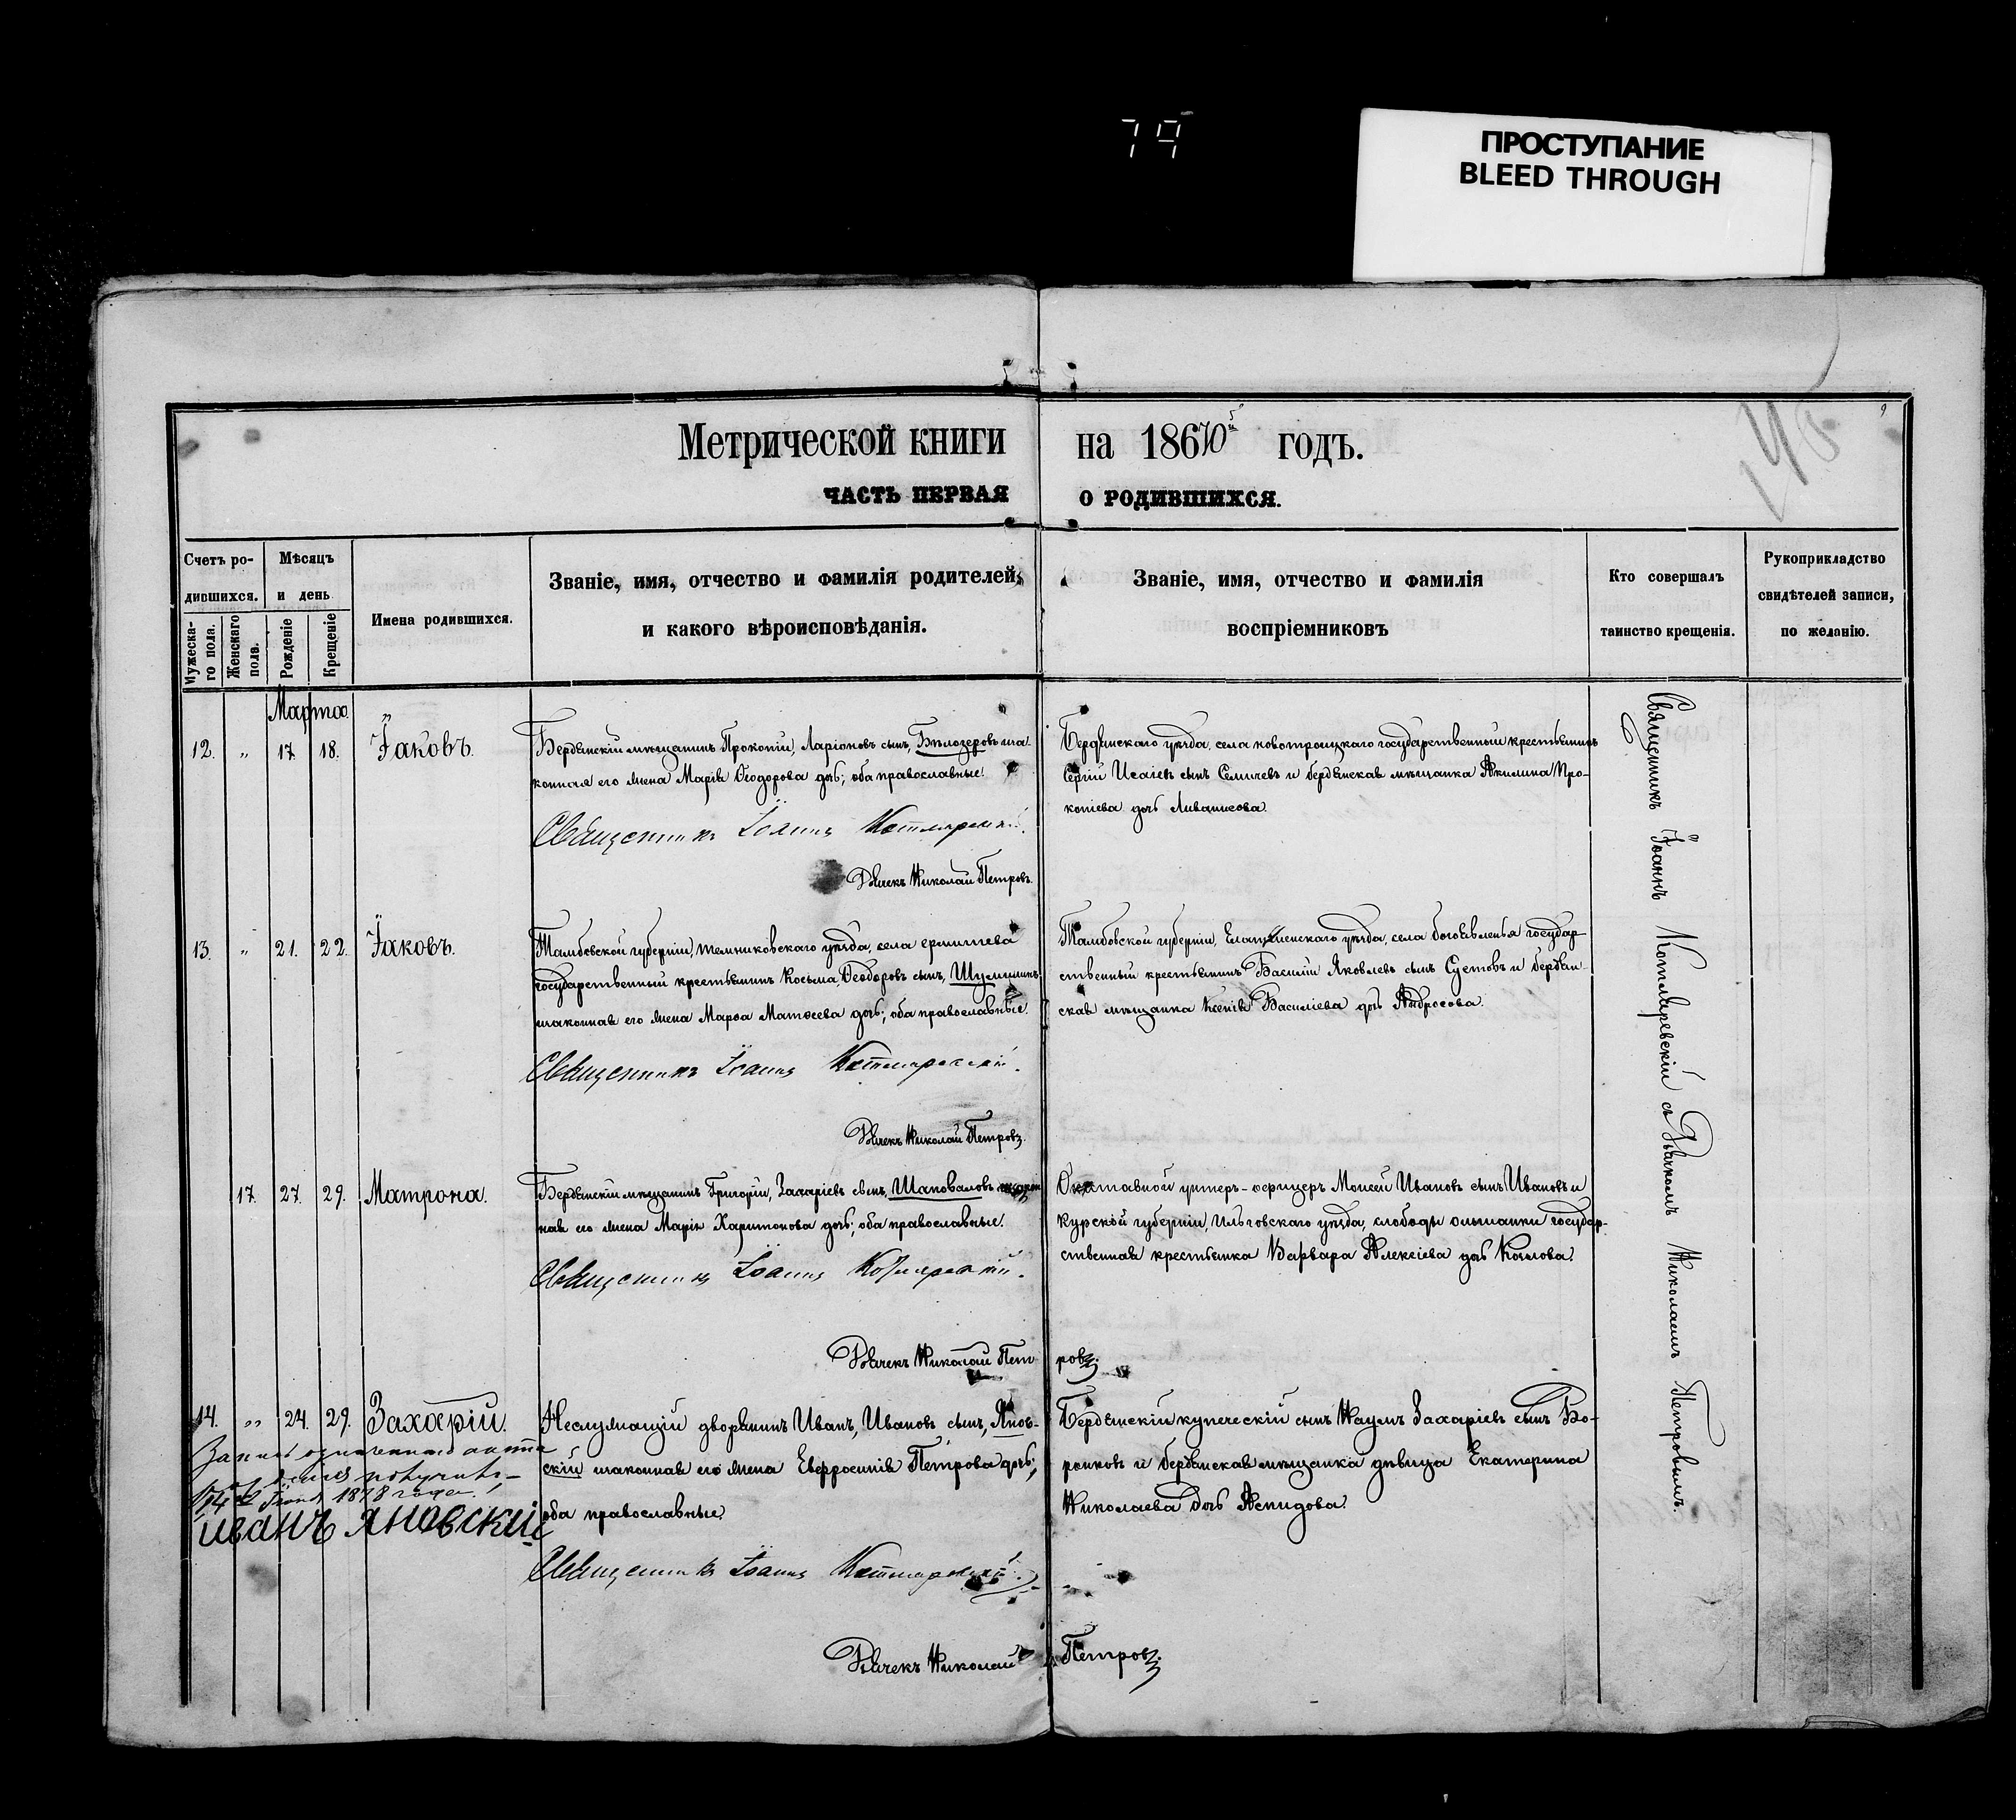 79
ПРОСТУПАНИЕ
BLEED THROUGH
Метрической книги на 1870 годъ.
ЧАСТЬ ПЕРВАЯ О РОДИВШИХСЯ.
Счетъ ро-
дившихся.
Мужеска-
го пола.
Женскаго
пола.
Мѣсяцъ
и день
Рожденіе
Крещеніе
Имена родившихся.
Званіе, имя, отчество и фамилія родителей,
и какого вѣроисповѣданія.
Званіе, имя, отчество и фамилія
воспріемниковъ
Кто совершалъ
таинство крещенія.
Рукоприкладство
свидѣтелей записи,
по желанію.
Марта
12. " 17 18. Іаковъ.
Бердянскій мѣщанинъ Прокопій, Ларіоновъ сынъ, Бѣлозеровъ и за-
конная его жена Марія Ѳеодорова дочь; оба православные.
Священникъ Іоаннъ Котляревскій.
Дьячекъ Николай Петровъ.
Бердянскаго уѣзда, села новотроицкаго государственный крестьянинъ
Сергій Исаіевъ сынъ и бердянская мѣщанка Акилина Про-
копіева дочь
13. " 21. 22. Іаковъ.
Тамбовской губерніи, темниковскаго уѣзда, села
государственный крестьянинъ Косьма, Ѳеодоровъ сынъ,
и законная его жена Марѳа Матѳеева дочь; оба православные.
Священникъ Іоаннъ Котляревскій.
Дьячекъ Николай Петровъ.
Тамбовской губерніи, уѣзда, села богоявленья государ-
ственный крестьянинъ Василій Яковлевъ сынъ и бердян-
ская мѣщанка Ксенія Василіева дочь Амбросова.
17. 27. 29. Матрона.
Бердянскій мѣщанинъ Григорій, Захаріевъ сынъ, Шаповаловъ и закон-
ная его жена Марія Харитонова дочь; оба православные.
Священникъ Іоаннъ Котляревскій.
Дьячекъ Николай Петровъ.
Отставной унтеръ-офицеръ Моисей Ивановъ сынъ Ивановъ и
курской губерніи, льговскаго уѣзда, слободы ольшанки государ-
ственная крестьянка Варвара Алексіева дочь Козлова.
14. " 24. 29. Захарій.
Неслужащій дворянинъ Иванъ, Ивановъ сынъ, Янов-
скій и законная его жена Евфросинія Петрова дочь;
оба православные.
Священникъ Іоаннъ Котляревскій.
Дьячекъ Николай Петровъ.
Бердянскій купеческій сынъ Наумъ Захаріевъ сынъ Во-
ронковъ и бердянская мѣщанка дѣвица Екатерина
Николаева дочь Аспидова.
1878 года
Иванъ Яновскій
Священникъ Іоаннъ Котляревскій съ Дьячкомъ Николаемъ Петровымъ.